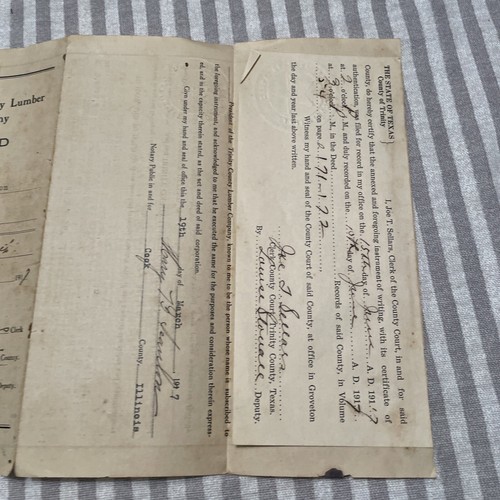 y Lumber
ny
D
Clerk
County.
Deputy.
President of the Trinity County Lumber Company, known to me to be the person whose name is subscribed to
the foregoing instrument, and acknowledged to me that he executed the same for the purposes and consideration therein express-
ed, and in the capacity therein stated, as the act and deed of said corporation.
Give under my hand and seal of office this the 19th day of March 191
Notary Public in and for Cook County, Illinois
THE STATE OF TEXAS
County of Trinity
I, Joe T. Sellars, Clerk of the County Court, in and for said
County, do hereby certify that the annexed and foregoing instrument of writing, with its certificate of
authentication, was filed for record in my office on the 15th day of June A. D. 1917
at 2 o'clock P. M., and duly recorded on the 19th day of June A. D. 1917
at M., in the Deed Records of said County, in Volume
54 on page 171-172
Witness my hand and seal of the County Court of said County, at office in Groveton
the day and year last above written.
Joe T. Sellars
County Court Trinity County, Texas.
By Deputy.